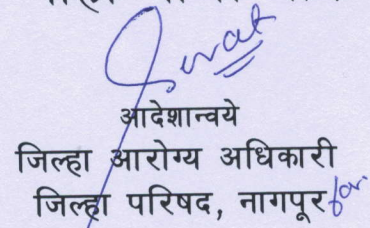 आदेशान्वये
जिल्हा आरोग्य अधिकारी
जिल्हा परिषद, नागपूर for